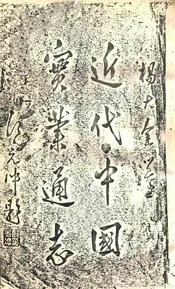 楊大金編
近代中國
實業通志
元冲題